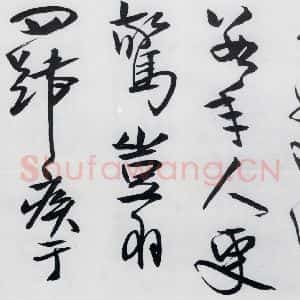 手人更
驚豈羽
四蹄疾于
ShufaWang.CN